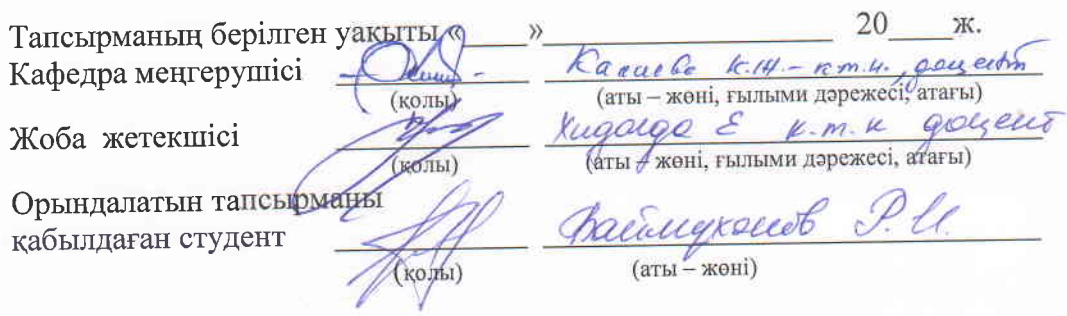 Тапсырманың берілген уақыты «____»____________________ 20____ж.
Кафедра меңгерушісі К.Ж. – к.т.н., доцент
(қолы) (аты – жөні, ғылыми дәрежесі, атағы)
Жоба жетекшісі Е к.т.н доцент
(қолы) (аты – жөні, ғылыми дәрежесі, атағы)
Орындалатын тапсырманы
қабылдаған студент Баймуханов Р.И.
(қолы) (аты – жөні)